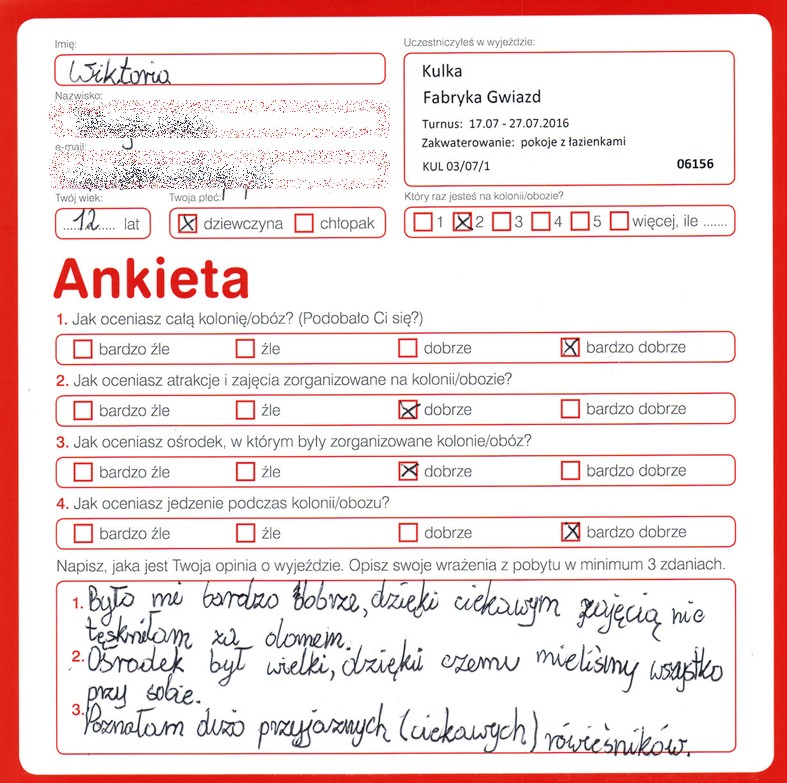 Imię:
Wiktoria
Nazwisko:
e-mail:
Twój wiek:
12 lat
Twoja płeć:
dziewczyna chłopak
Uczestniczyłeś w wyjeździe:
Kulka
Fabryka Gwiazd
Turnus: 17.07 - 27.07.2016
Zakwaterowanie: pokoje z łazienkami
KUL 03/07/1 06156
Który raz jesteś na kolonii/obozie?
1 2 3 4 5 więcej, ile .......
Ankieta
1. Jak oceniasz całą kolonię/obóz? (Podobało Ci się?)
bardzo źle źle dobrze bardzo dobrze
2. Jak oceniasz atrakcje i zajęcia zorganizowane na kolonii/obozie?
bardzo źle źle dobrze bardzo dobrze
3. Jak oceniasz ośrodek, w którym były zorganizowane kolonie/obóz?
bardzo źle źle dobrze bardzo dobrze
4. Jak oceniasz jedzenie podczas kolonii/obozu?
bardzo źle źle dobrze bardzo dobrze
Napisz, jaka jest Twoja opinia o wyjeździe. Opisz swoje wrażenia z pobytu w minimum 3 zdaniach.
1. Było mi bardzo dobrze, dzięki ciekawym zajęcią nie
tęskniłam za domem.
2. Ośrodek był wielki, dzięki czemu mieliśmy wszystko
przy sobie.
3. Poznałam dużo przyjaznych (ciekawych) rówieśników.